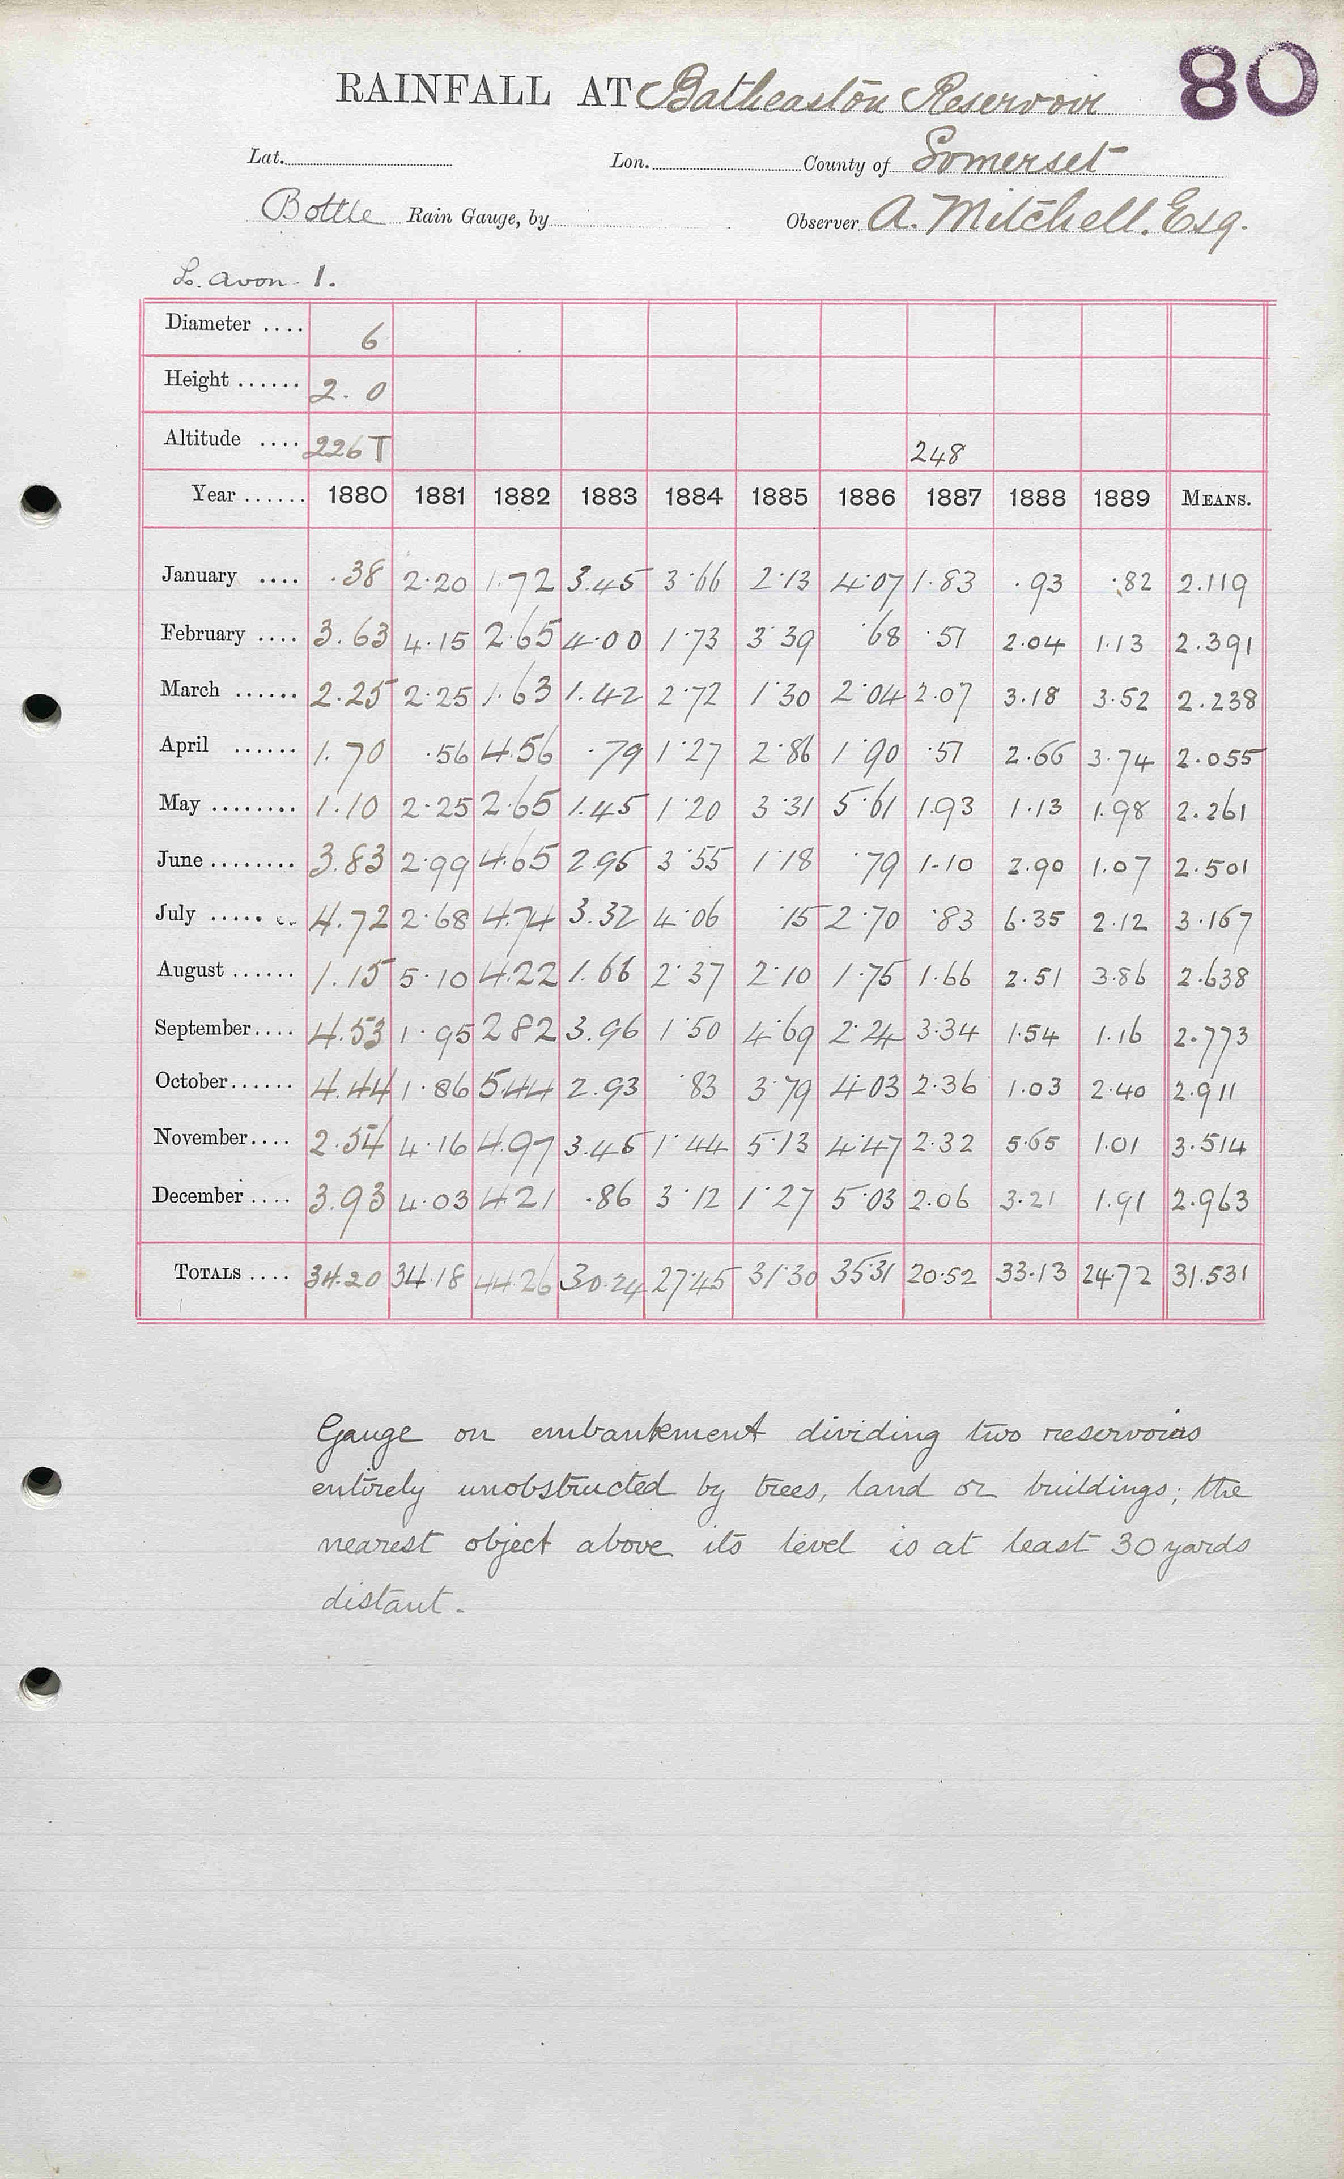 80
RAINFALL AT Batheaston Reservoir
Lat. Lon. County of Somerset
Bottle Rain Gauge, by Observer A. Mitchell. Esq.
L. Avon 1.
Diameter .... 6
Height ...... 2. 0
Altitude .... 226T 248
Year ...... 1880 1881 1882 1883 1884 1885 1886 1887 1888 1889 MEANS.
January .... .38 2.20 1.72 3.45 3.66 2.13 4.07 1.83 .93 .82 2.119
February .... 3.63 4.15 2.65 4.00 1.73 3.39 .68 .51 2.04 1.13 2.391
March ...... 2.25 2.25 1.63 1.42 2.72 1.30 2.04 2.07 3.18 3.52 2.238
April ...... 1.70 .56 4.56 .79 1.27 2.86 1.90 .51 2.66 3.74 2.055
May ........ 1.10 2.25 2.65 1.45 1.20 3.31 5.61 1.93 1.13 1.98 2.261
June ........ 3.83 2.99 4.65 2.95 3.55 1.18 .79 1.10 2.90 1.07 2.501
July ........ 4.72 2.68 4.74 3.32 4.06 .15 2.70 .83 6.35 2.12 3.167
August ...... 1.15 5.10 4.22 1.66 2.37 2.10 1.75 1.66 2.51 3.86 2.638
September.... 4.53 1.95 2 82 3.96 1.50 4.69 2.24 3.34 1.54 1.16 2.773
October...... 4.44 1.86 5.44 2.93 .83 3.79 4.03 2.36 1.03 2.40 2.911
November.... 2.54 4.16 4.97 3.45 1.44 5.13 4.47 2.32 5.65 1.01 3.514
December .... 3.93 4.03 4.21 .86 3.12 1.27 5.03 2.06 3.21 1.91 2.963
TOTALS .... 34.20 34.18 44.26 30.24 27.45 31.30 35.31 20.52 33.13 24.72 31.531
Gauge on embankment dividing two reservoirs
entirely unobstructed by trees, land or buildings; the
nearest object above its level is at least 30 yards
distant.